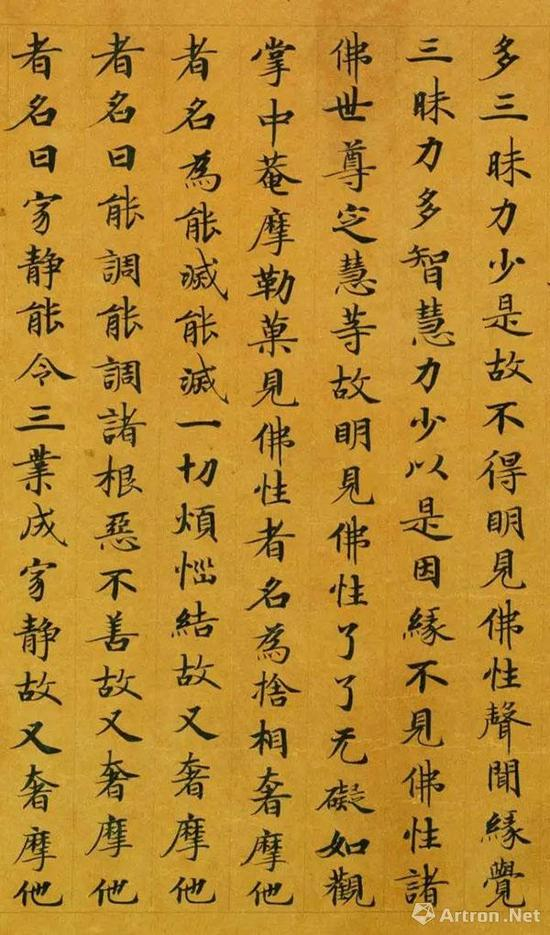 多三昧力少是故不得明見佛性聲聞緣覺
三昧力多智慧力少以是因緣不見佛性諸
佛世尊定慧等故明見佛性了了无礙如觀
掌中菴摩勒菓見佛性者名為捨相奢摩他
者名為能滅能滅一切煩惱結故又奢摩他
者名曰能調能調諸根惡不善故又奢摩他
者名曰寂靜能令三業成寂靜故又奢摩他
Artron.Net